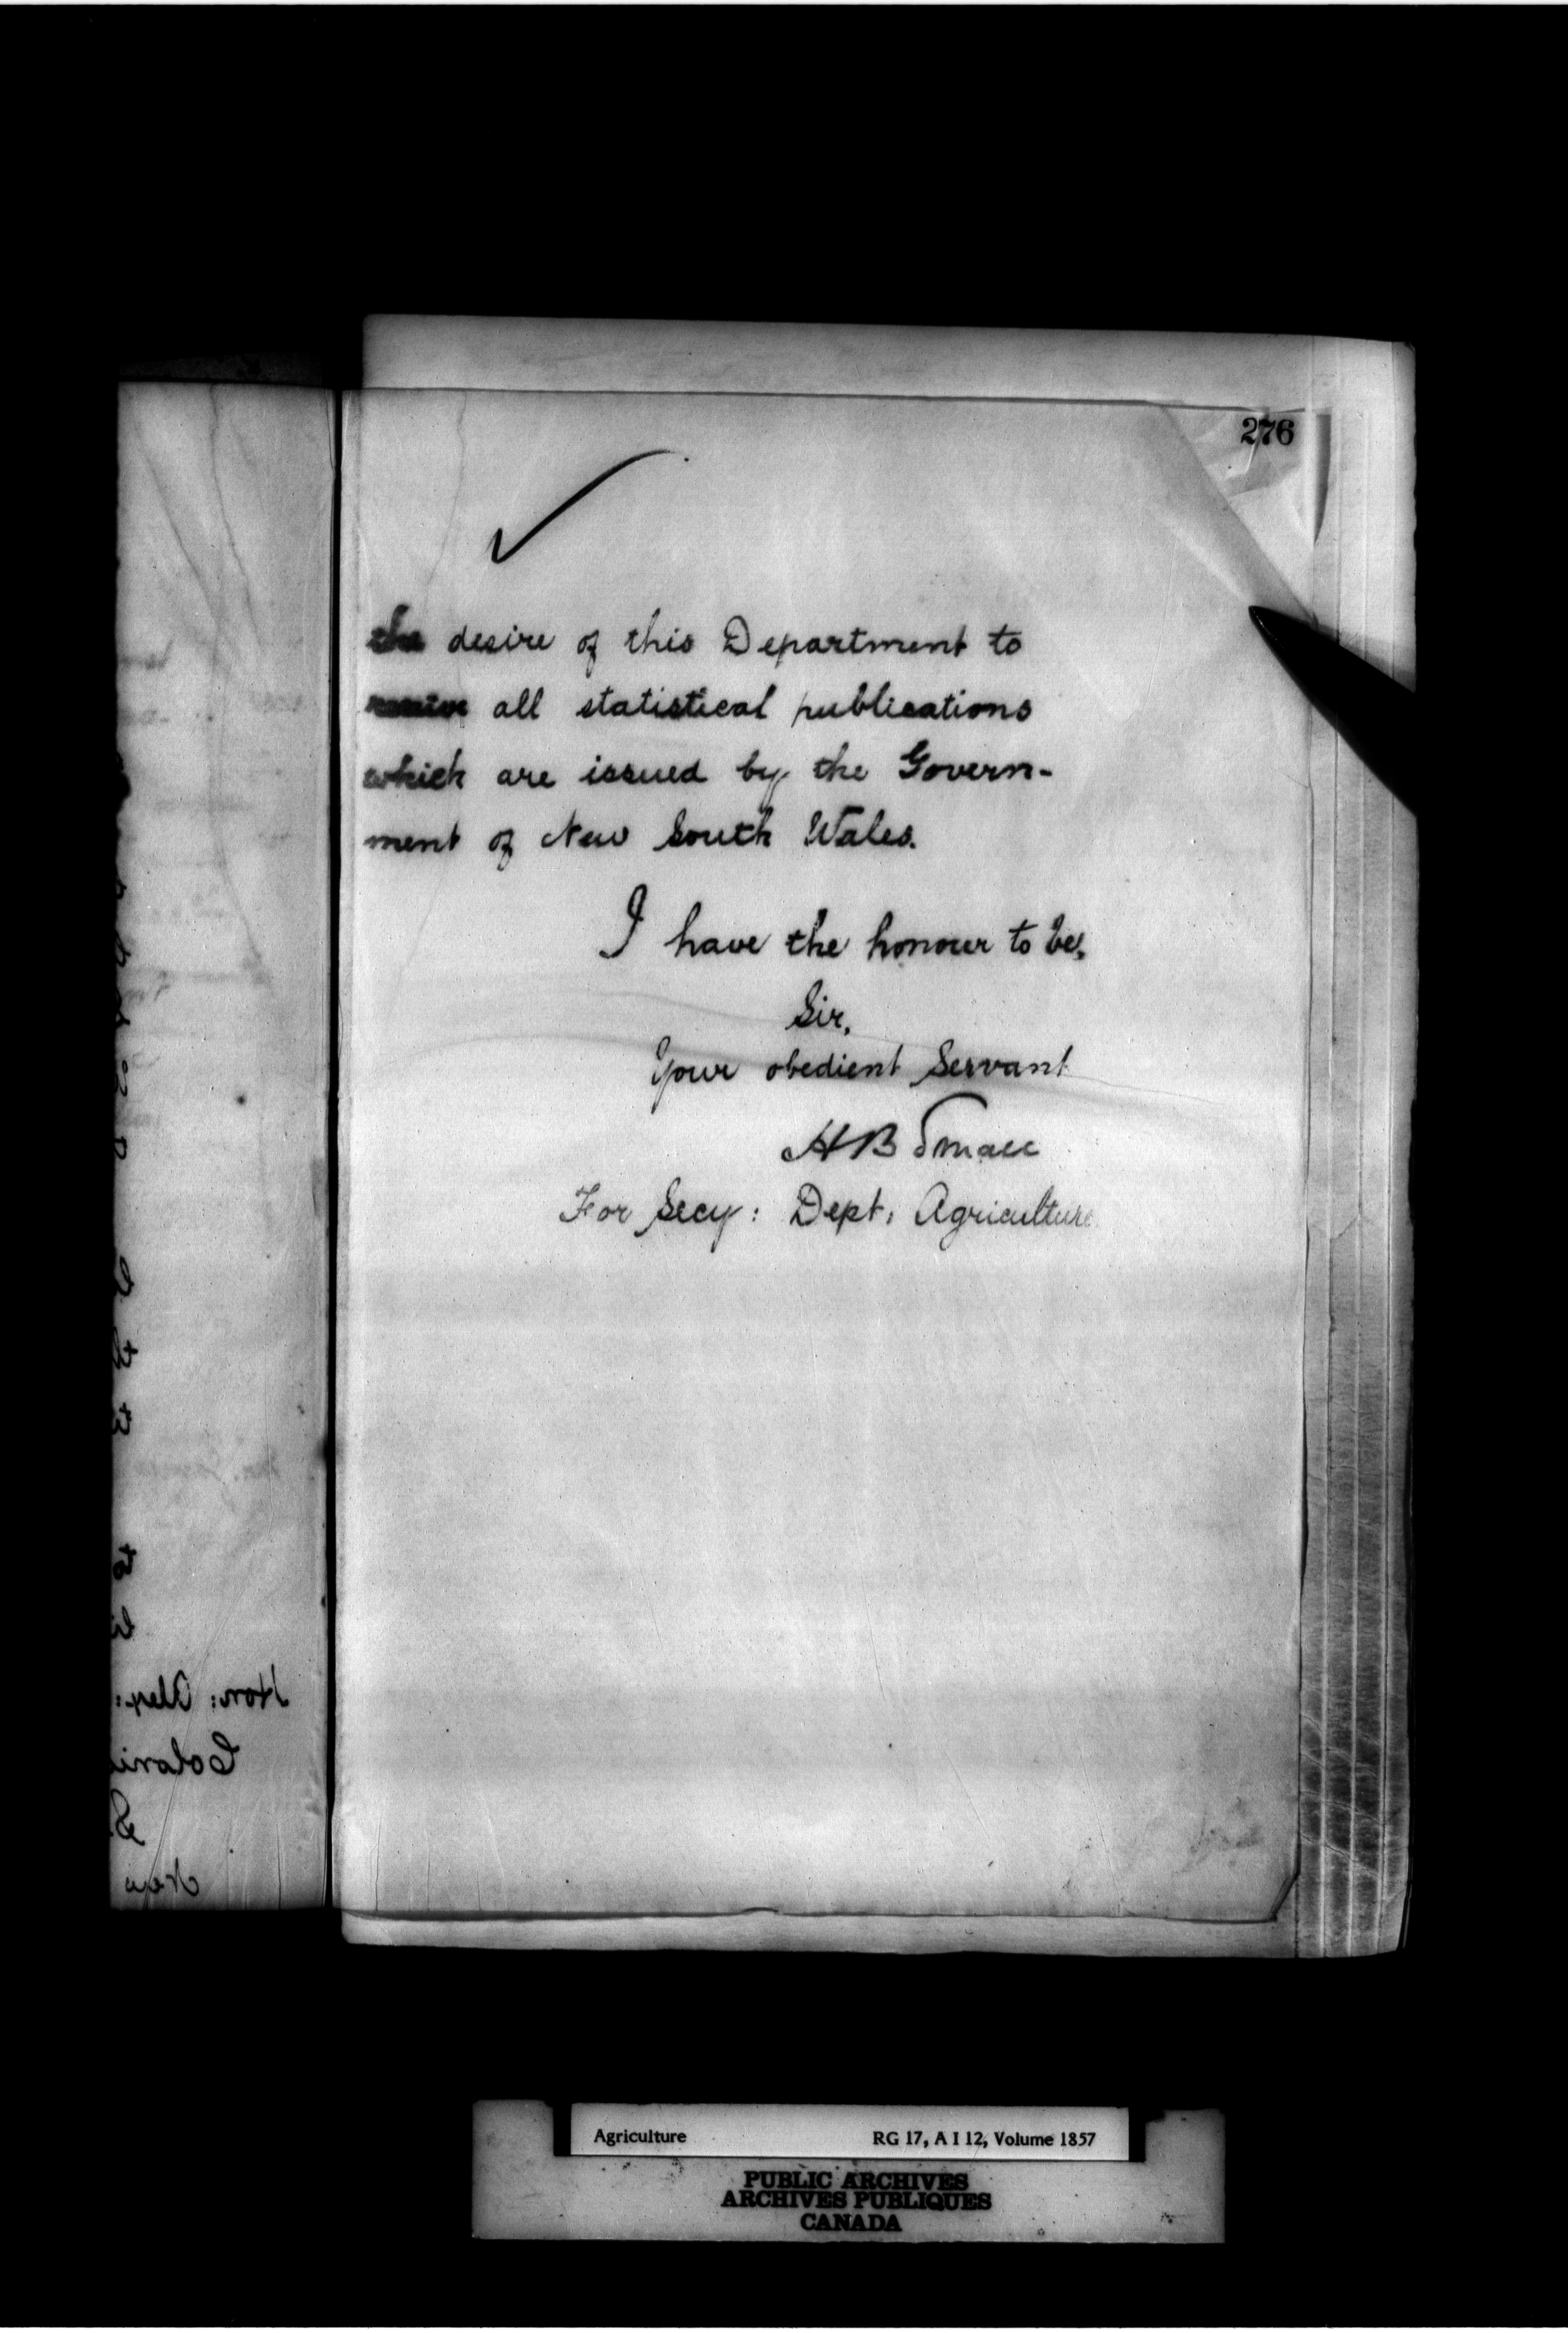 276
the desire of this Department to
receive all statistical publications
which are issued by the Govern-
ment of New South Wales.
I have the honour to be,
Sir,
Your obedient Servant
H B Small
For Secy: Dept. Agriculture
Hon: Alex:
Coloni
New
Agriculture RG 17, A I 12, Volume 1857
PUBLIC ARCHIVES
ARCHIVES PUBLIQUES
CANADA